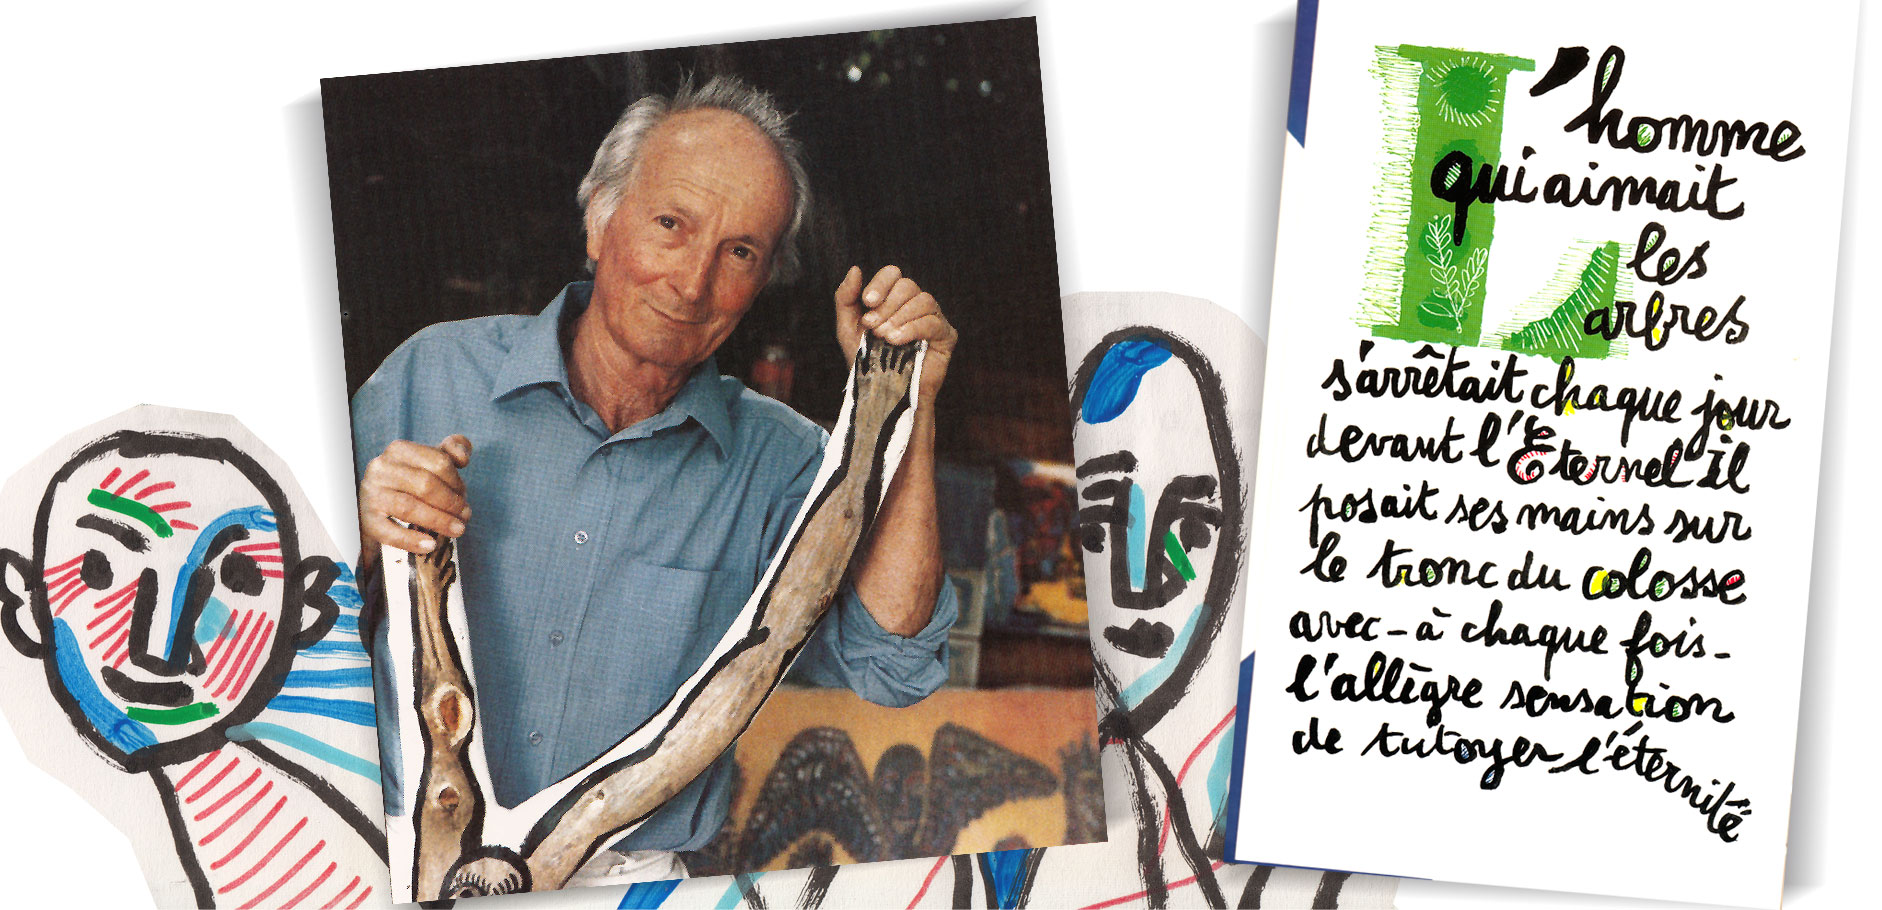 L'homme
qui aimait
les
arbres
s'arrêtait chaque jour
devant l'Eternel Il
posait ses mains sur
le tronc du colosse
avec - à chaque fois -
l'allègre sensation
de tutoyer l'éternité